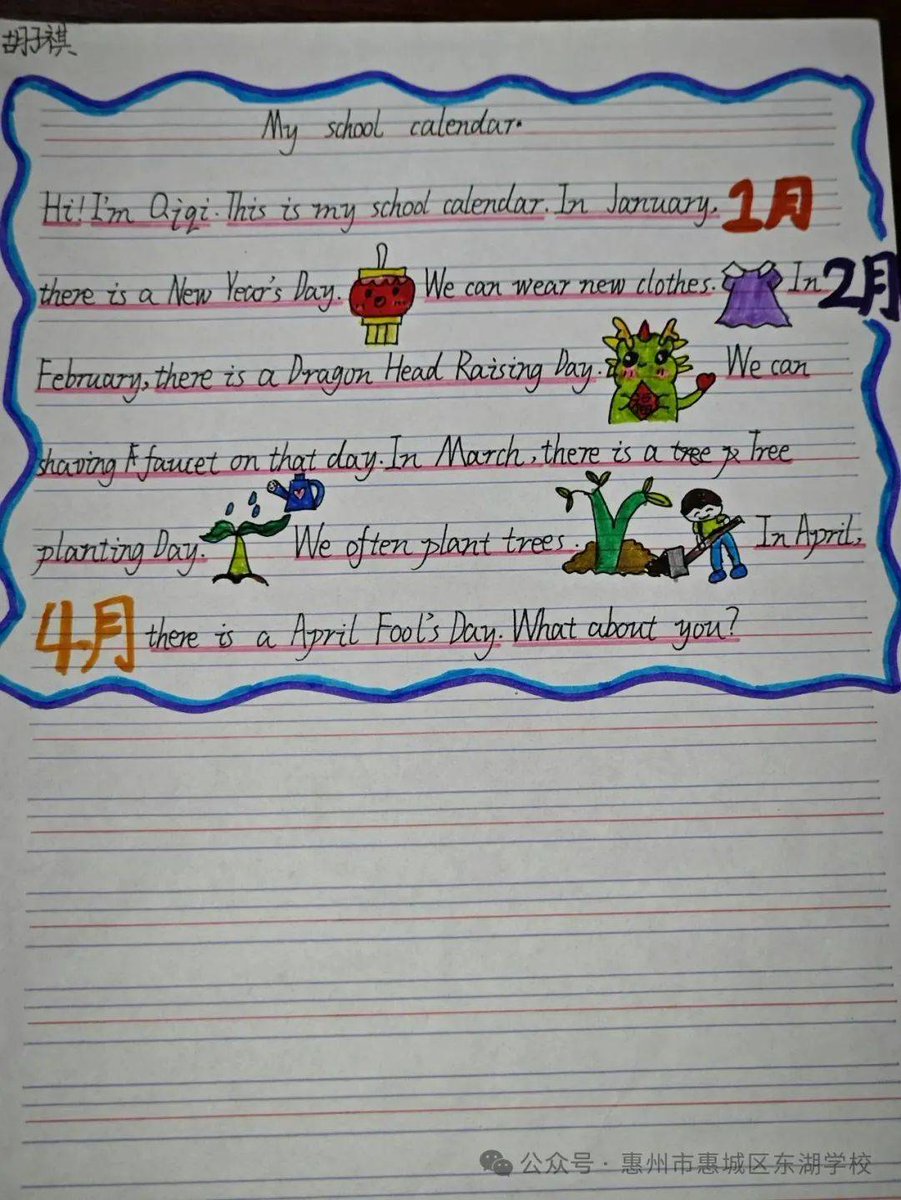 胡子祺
My school calendar.
Hi! I'm Qiqi. This is my school calendar. In January, 1月
there is a New Year's Day. We can wear new clothes. In 2月
February, there is a Dragon Head Raising Day. 福 We can
shaving A faucet on that day. In March, there is a tree Tree
planting Day. We often plant trees. In April,
4月 there is a April Fool's Day. What about you?
公众号 · 惠州市惠城区东湖学校